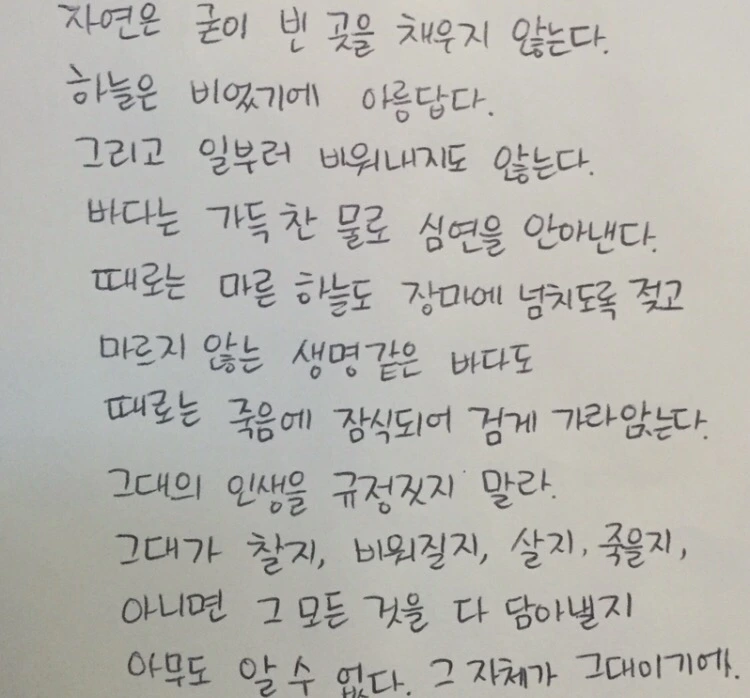 자연은 굳이 빈 곳을 채우지 않는다.
하늘은 비었기에 아름답다.
그리고 일부러 비워내지도 않는다.
바다는 가득 찬 물로 심연을 안아낸다.
때로는 마른 하늘도 장마에 넘치도록 젖고
마르지 않는 생명같은 바다도
때로는 죽음에 잠식되어 검게 가라앉는다.
그대의 인생을 규정짓지 말라.
그대가 찰지, 비워질지, 살지, 죽을지,
아니면 그 모든 것을 다 담아낼지
아무도 알 수 없다. 그 자체가 그대이기에.